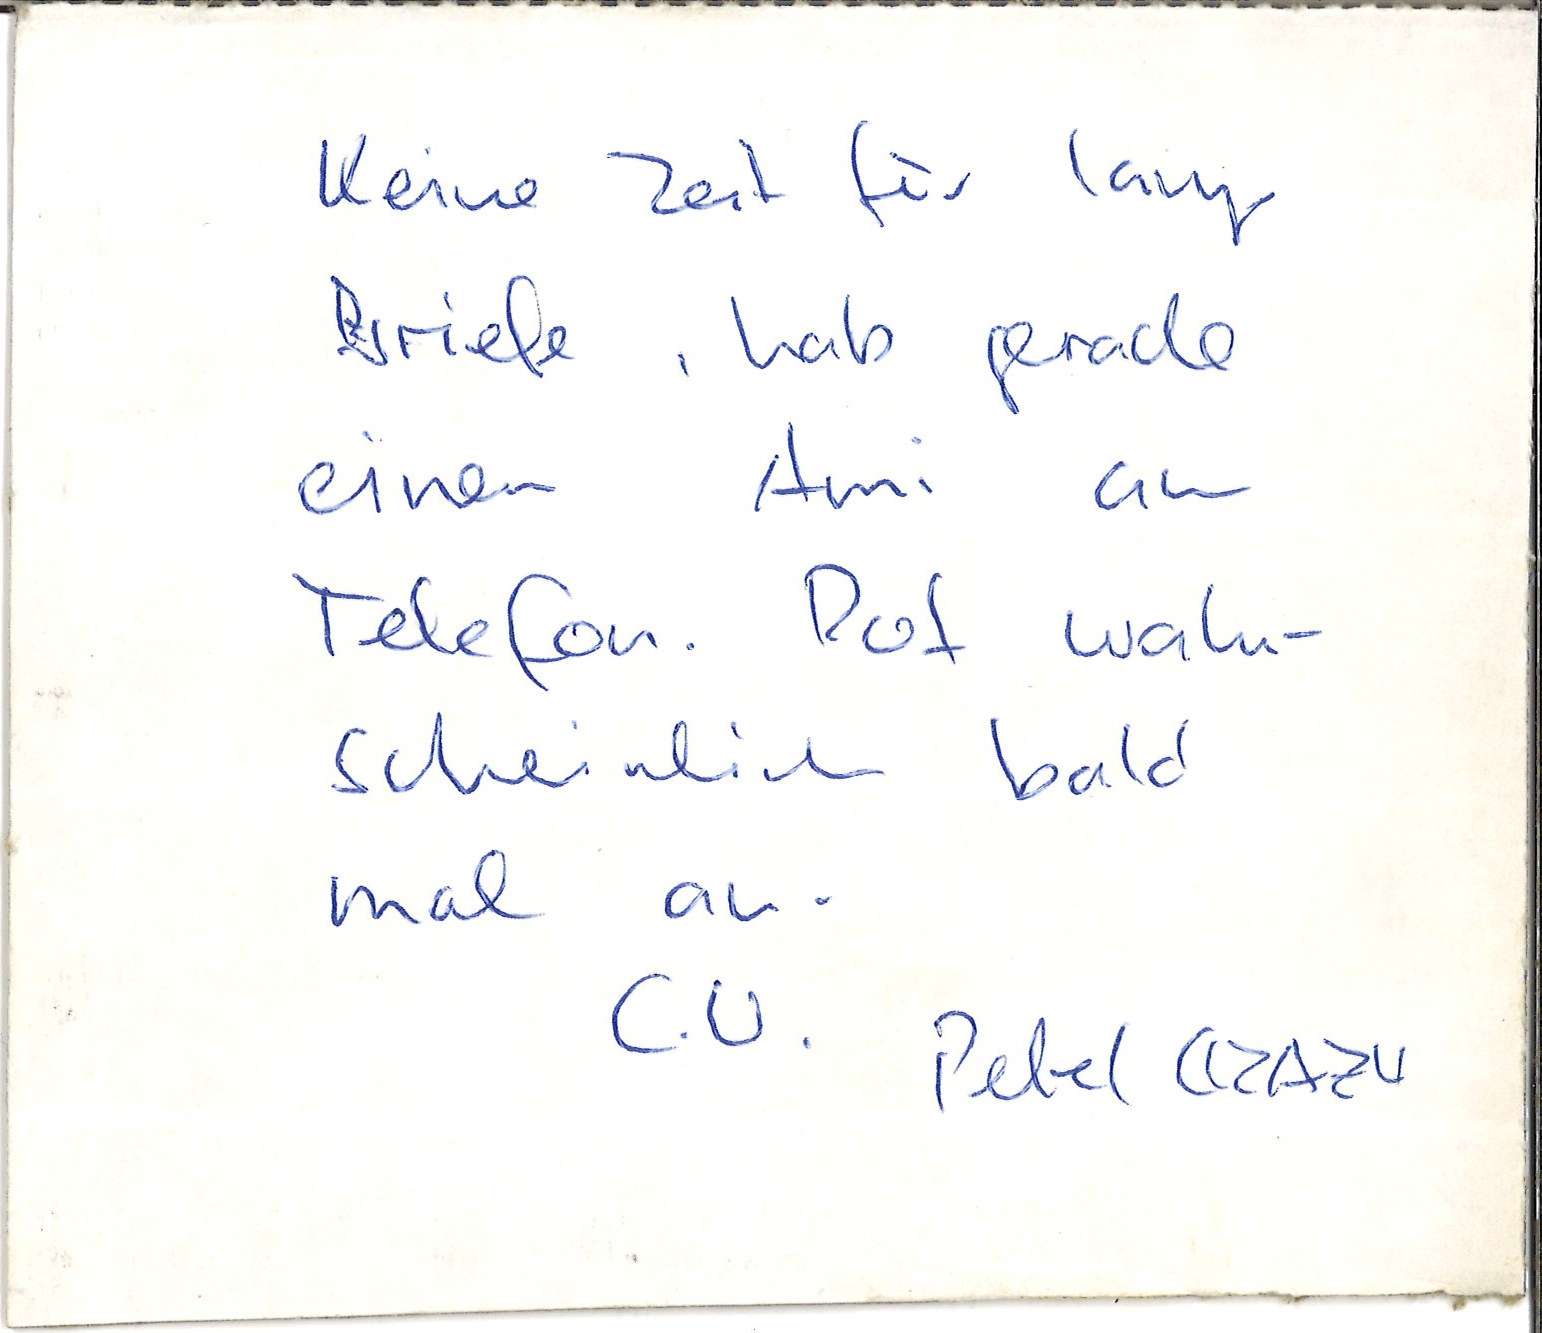 Keine Zeit für lange
Briefe, hab gerade
einen Ami am
Telefon. Ruf wahr-
scheinlich bald
mal an.
C.U.